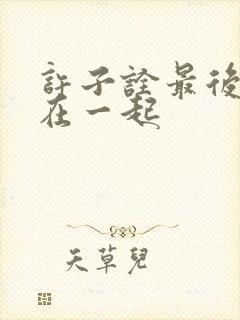 許子詮最後
在一起
天草兒